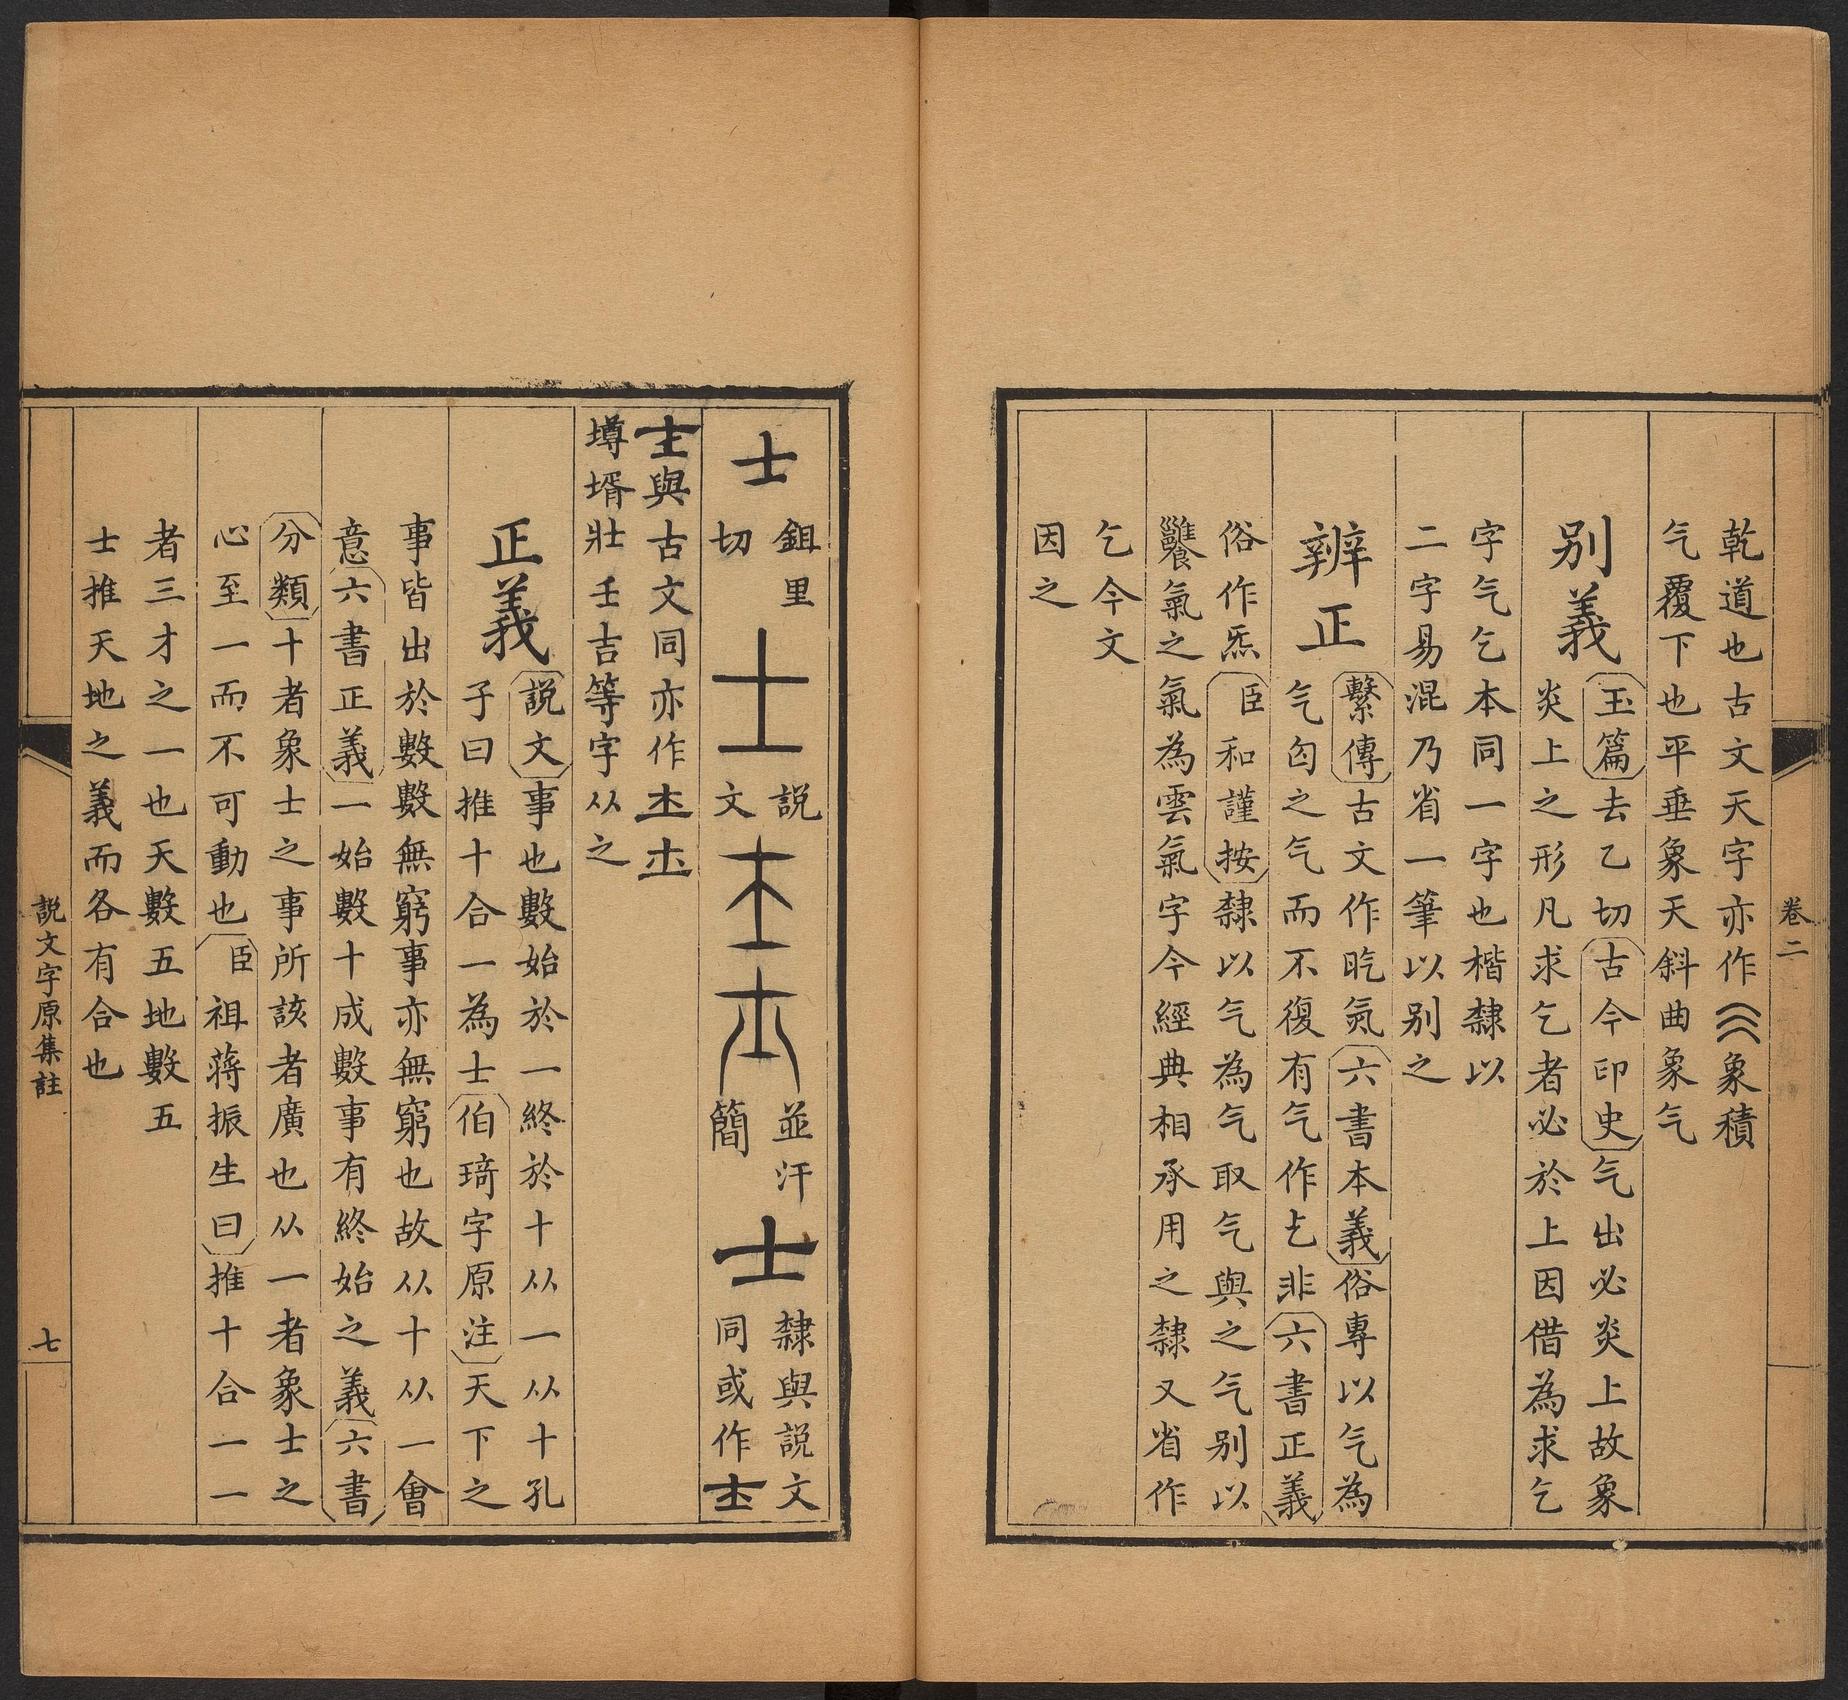 卷二
乾道也古文天字亦作象積
气覆下也平垂象天斜曲象气
别義
玉篇去乙切古今印史气出必炎上故象
炎上之形凡求乞者必於上因借為求乞
字气乞本同一字也楷隸以
二字易混乃省一筆以别之
辨正
繫傳古文作㫓氖六書本義俗專以气為
气匃之气而不復有气作乞非六書正義
俗作炁臣和謹按隸以气為气取气與之气别以
饔氣之氣為雲氣字今經典相承用之隸又省作
乞今文
因之
士
鉏里
切
士
說
文
並汗
簡
士
隸與說文
同或作𡈼
𡉚與古文同亦作
墫壻壯壬吉等字从之
正義
說文事也數始於一終於十从一从十孔
子曰推十合一為士伯琦字原注天下之
事皆出於數數無窮事亦無窮也故从十从一會
意六書正義一始數十成數事有終始之義六書
分類十者象士之事所該者廣也从一者象士之
心至一而不可動也臣祖蔣振生曰推十合一一
者三才之一也天數五地數五
士推天地之義而各有合也
說文字原集註
七